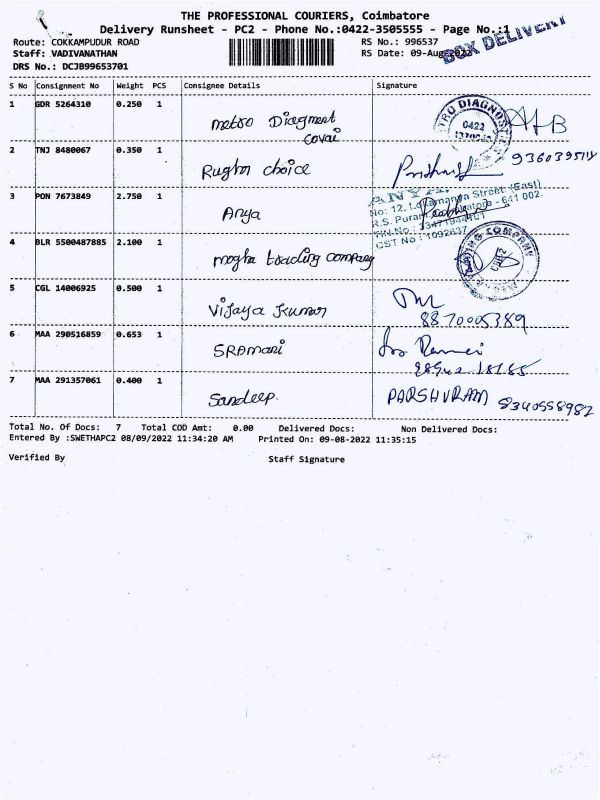 THE PROFESSIONAL COURIERS, Coimbatore
Delivery Runsheet - PC2 - Phone No.:0422-3505555 - Page No.:1
BOX DELIVERY
Route: COKKAMPUDUR ROAD RS No.: 996537
Staff: VADIVANATHAN RS Date: 09-Aug-2022
DRS No.: DCJB99653701
S No Consignment No Weight PCS Consignee Details Signature
1 GDR 5264310 0.250 1 Metro Diagment
Covai
0422
2 TNJ 8480067 0.350 1 Rughn choice
3 PON 7673849 2.750 1 Anya
No: 12, Lokamanya Street (East)
R.S. Puram, Coimbatore - 641 002.
CST No : 1092637
4 BLR 5500487885 2.100 1 megha trading company
5 CGL 14006925 0.500 1 Vijaya Kumar
8870005389
6 MAA 290516859 0.653 1 SRAMANI
7 MAA 291357061 0.400 1 Sandeep. PARSHVRAM
Total No. Of Docs: 7 Total COD Amt: 0.00 Delivered Docs: Non Delivered Docs:
Entered By :SWETHAPC2 08/09/2022 11:34:20 AM Printed On: 09-08-2022 11:35:15
Verified By Staff Signature